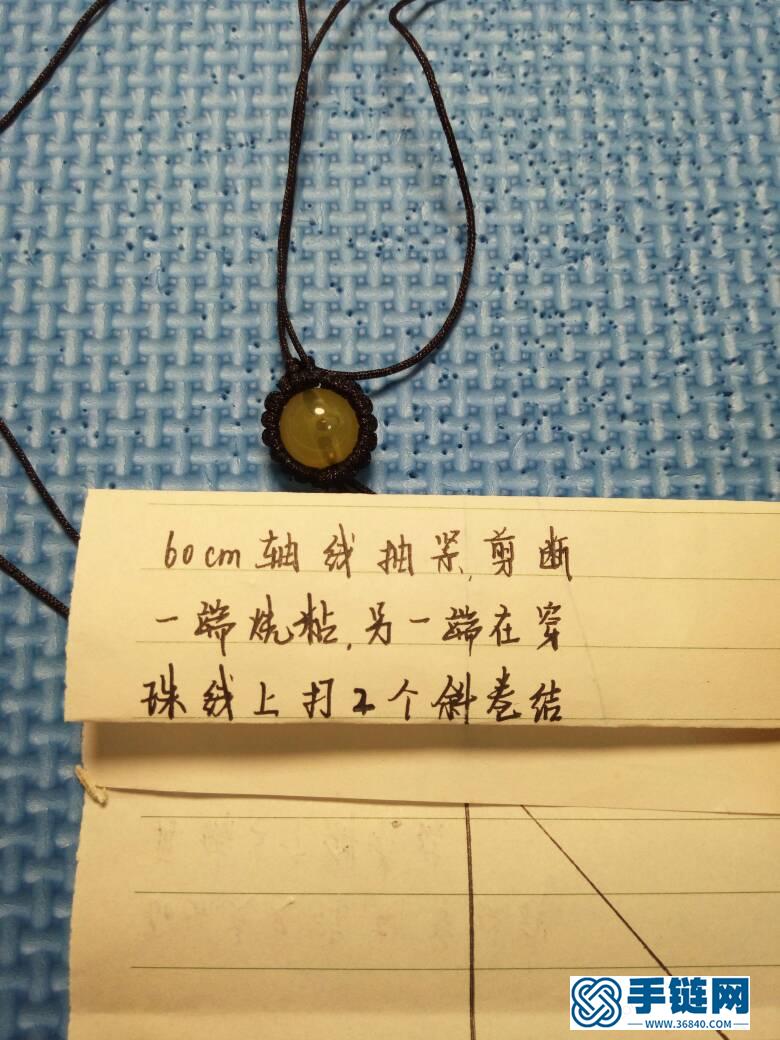 60cm轴线抽紧,剪断
一端烧粘,另一端在穿
珠线上打2个斜卷结
手链网
WWW.36840.COM